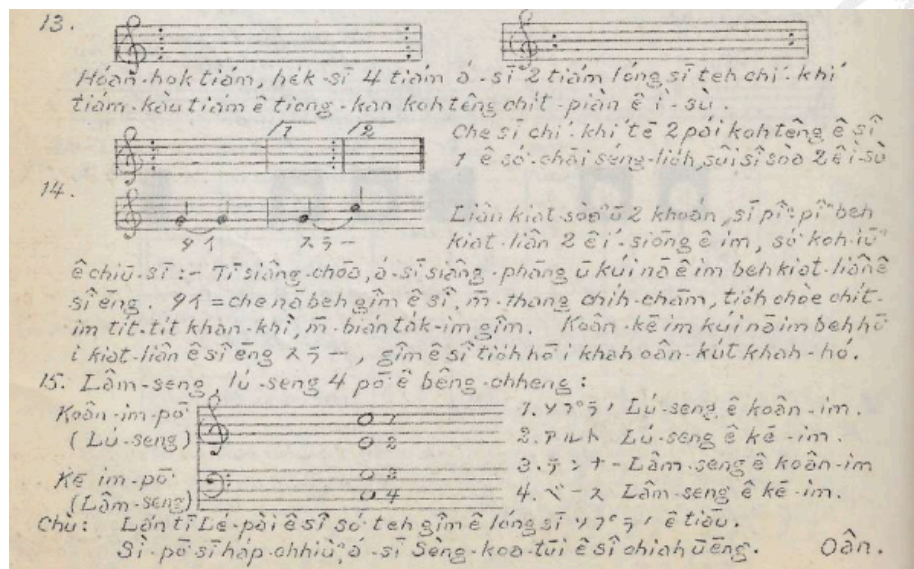 13.
Hoán-hok tiám, hék-sī 4 tiám á-sī 2 tiám lóng sī teh chí-khí
tiám-kàu tiám ê tiong-kan koh têng chit-piàn ê ì-sù.
1 2
Che sī chí-khí tē 2 pái koh têng ê sî
1 ê só-chāi séng-lio̍h, sûi sî sòa 2 ê ì-sù
14.
Liân kiat sòaⁿ ū 2 khoán, sī pīⁿ-pīⁿ beh
kiat-liân 2 ê í-siōng ê im, só koh-iūⁿ
タイ スラー
ê chiū-sī :- Tī siâng-chōa, á-sī siâng-phāng ū kúi nā ê im beh kiat-liân ê
sî ēng. タイ = che nā beh gîm ê sî, m̄-thang chih-chām, tio̍h chòe chit-
im tit-tit khan-khì, m̄-bián ta̍k-im gîm. Koân-kē im kúi nā im beh hō͘
i kiat-liân ê sî ēng スラー, gîm ê sî tio̍h hō͘ i khah oân-kút khah-hó.
15. Lâm-seng, lú-seng 4 pō͘ ê bêng-chheng :
Koân-im-pō͘ 1 1. ソプラノ Lú-seng ê koân-im.
(Lú-seng) 2 2. アルト Lú-seng ê kē-im.
Kē im-pō͘ 3 3. テナー Lâm-seng ê koân-im
(Lâm-seng) 4 4. ベース Lâm-seng ê kē-im.
Chù: Lán tī Lé-pài ê sî só͘ teh gîm ê lóng sī ソプラノ ê tiāu.
Sì-pō͘ sī ha̍p-chhiùⁿ á-sī Sèng-koa-tūi ê sî chiah ū ēng. Oân.